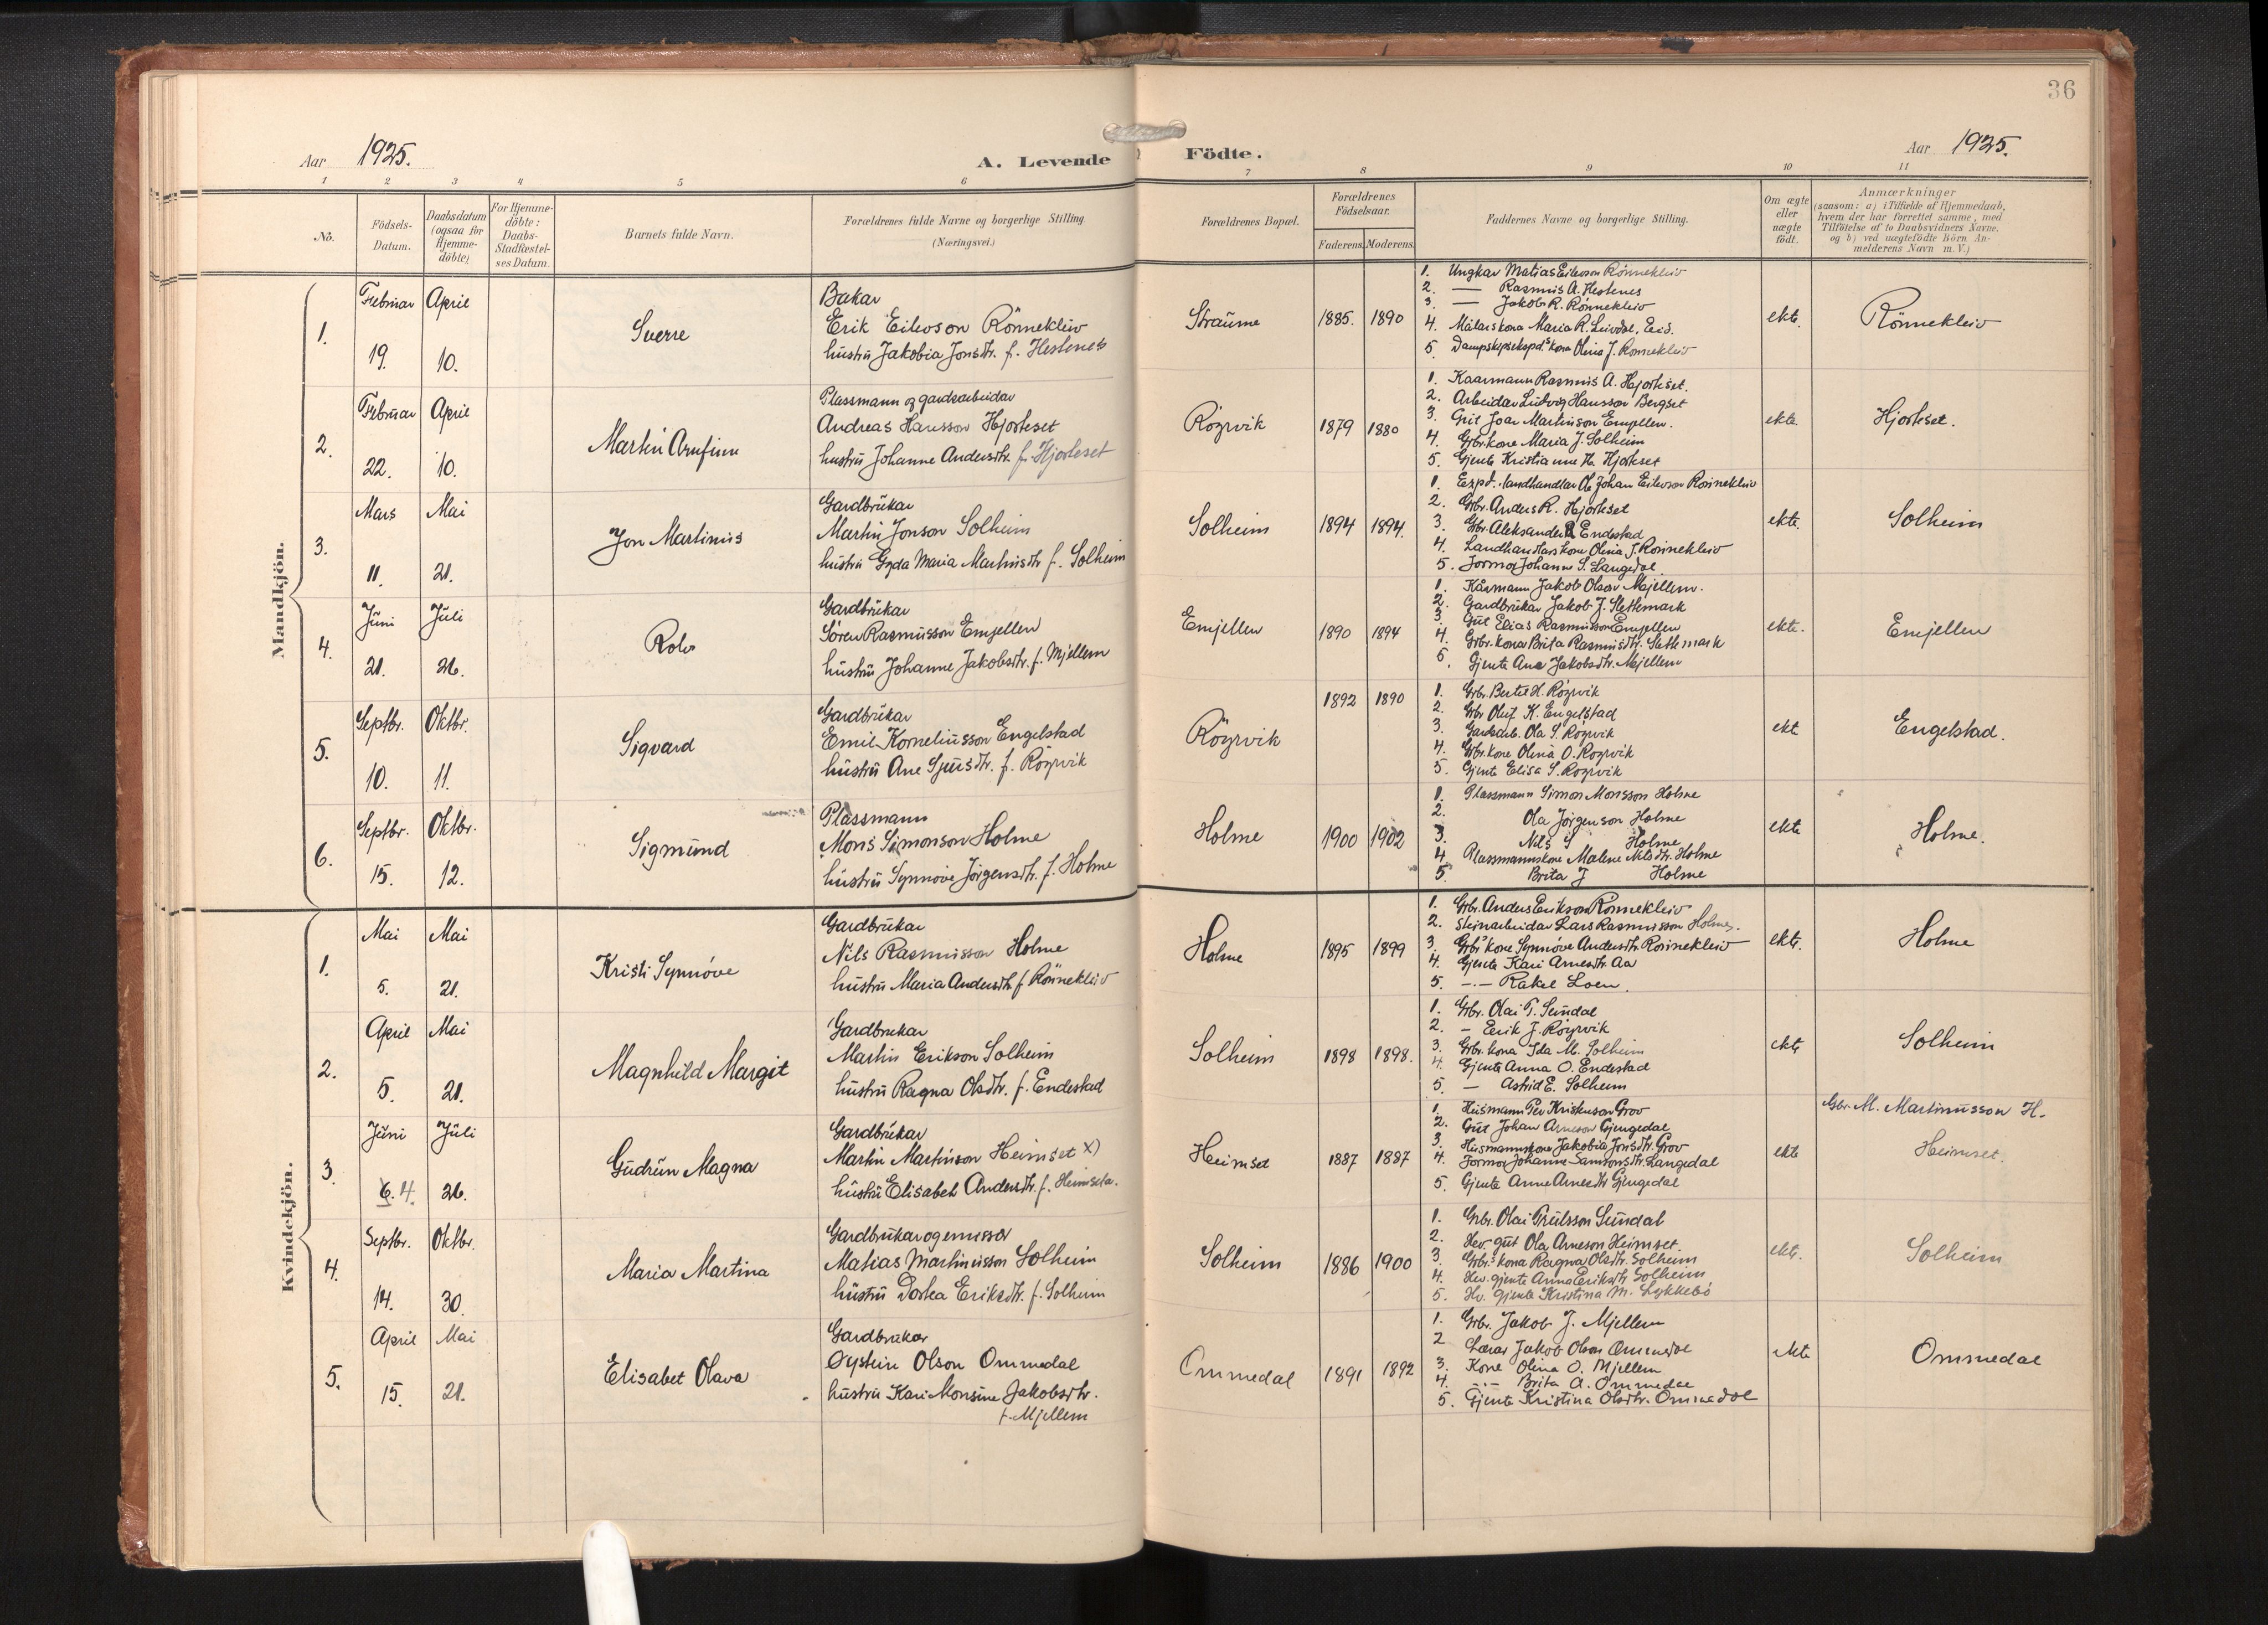 36
Aar 1925.
A. Levende Födte.
Aar 1925.
1 2 3 4 5 6 7 8 9 10 11
No.
Födsels-Datum.
Daabsdatum (ogsaa for Hjemme-döbte)
For Hjemme-döbte: Daabs-Stadfæstel-ses Datum.
Barnets fulde Navn.
Forældrenes fulde Navne og borgerlige Stilling.
(Næringsvei.)
Forældrenes Bopæl.
Forældrenes Födselsaar.
Faderens. Moderens.
Faddernes Navne og borgerlige Stilling.
Om ægte eller uægte födt.
Anmærkninger
(saasom: a) i Tilfælde af Hjemmedaab,
hvem der har forrettet samme, med
Tilföielse af to Daabsvidners Navne,
og b) ved uægtefödte Börn An-
melderens Navn m. V.)
Mandkjön.
1.
Februar 19.
April 10.
Sverre
Bakar
Erik Eilevson Rönnekleiv
hustru Jakobia Jonsdtr. f. Hestenes
Straume
1885. 1890
1. Ungkar Matias Eilevson Rönnekleiv
2. — Rasmus A. Hestenes
3. — Jakob R. Rönnekleiv
4. Målarskona Maria R. Leivdal, Eid.
5. Dampskipsekspd.s kona Olina J. Rönnekleiv
ekte.
Rönnekleiv
2.
Februar 22.
April 10.
Martin Arnfinn
Plassmann og gardsarbeidar
Andreas Hansson Hjorteset
hustru Johanne Andersdtr. f. Hjorteset
Röyrvik
1879 1880
1. Kaarmann Rasmus A. Hjorteset.
2. Arbeidar Ludvig Hansson Bergset
3. Gut Joar Martinson Emjellen.
4. Grbr.kone Maria J. Solheim
5. Gjente Kristianne H. Hjorteset
ekte.
Hjorteset.
3.
Mars 11.
Mai 21.
Jon Martinus
Gardbrukar
Martin Jonson Solheim
hustru Gyda Maria Martinsdtr f. Solheim
Solheim
1894 1894.
1. Expd. landhandlar Ole Johan Eilevson Rönnekleiv
2. Grbr. Anders R. Hjorteset
3. Grbr. Aleksander R Endestad
4. Landhandlarskone Olina J. Rönnekleiv
5. Jormor Johanne S. Langedal.
ekte.
Solheim
4.
Juni 21.
Juli 26.
Rolv
Gardbrukar
Sören Rasmusson Emjellen
hustru Johanne Jakobsdtr. f. Mjellem
Emjellen
1890 1894
1. Kårmann Jakob Olson Mjellem.
2. Gardbrukar Jakob J. Slettemark
3. Gut Elias Rasmusson Emjellen
4. Grbr.kona Brita Rasmusdtr. Slettemark
5. Gjente Ane Jakobsdtr. Mjellem
ekte.
Emjellen
5.
Septbr. 10.
Oktbr. 11.
Sigvard
Gardbrukar
Emil Korneliusson Engelstad
hustru Ane Sjursdtr. f. Röyrvik
Röyrvik
1892 1890
1. Grbr. Bertel H. Röyrvik
2. Grbr Oluf K. Engelstad
3. Gardarb. Ola S. Röyrvik
4. Grbr.kone Olina O. Röyrvik
5. Gjente Elisa S. Röyrvik
ekt
Engelstad.
6.
Septbr. 15.
Oktbr. 12.
Sigmund
Plassmann
Mons Simonson Holme
hustru Synnöve Jörgensdtr. f. Holme
Holme
1900 1902
1. Plassmann Simon Monsson Holme
2. Ola Jörgenson Holme
3. Nils S Holme
4. Plassmannskone Malene Nilsdtr. Holme
5. Brita J Holme
ekte
Holme.
Kvindekjön.
1.
Mai 5.
Mai 21.
Kristi Synnöve
Gardbrukar
Nils Rasmusson Holme
hustru Maria Andersdtr f. Rönnekleiv
Holme
1895 1899
1. Grbr. Anders Erikson Rönnekleiv
2. Steinarbeidar Lars Rasmusson Holme.
3. Grbr.s kone Synnöve Andersdtr. Rönnekleiv
4. Gjente Kari Arnesdtr. Aa
5. -.- Rakel Loen.
ekte.
Holme
2.
April 5.
Mai 21.
Magnhild Margit
Gardbrukar
Martin Erikson Solheim
hustru Ragna Olsdtr. f. Endestad
Solheim
1898 1898.
1. Grbr. Olai T. Sundal
2. - Eerik J. Röyrvik
3. Grbr.kona Ida M. Solheim
4. Gjente Anna O. Endestad
5. — Astrid E. Solheim
ekte
Solheim
3.
Juni 6. 4.
Juli 26.
Gudrun Magna
Gardbrukar
Martin Martinson Heimset x)
hustru Elisabet Andersdtr. f. Heimseta.
Heimset
1887 1887
1. Husmann Per Kristenson Grov
2. Gut Johan Arneson Gjengedal
3. Husmannskone Jakobia Jonsdtr. Grov
4. Jormor Johanne Samsonsdtr. Langedal
5. Gjente Anne Arnesdtr Gjengedal
ekte
Gbr. M. Martinusson H.
Heimset.
4.
Septbr. 14.
Oktbr. 30.
Maria Martina
Gardbrukar og
Matias Martinusson Solheim
hustru Dortea Eriksdtr. f. Solheim
Solheim
1886 1900
1. Grbr. Olai Truilsson Sundal
2. Hev. gut Ola Arneson Heimset.
3. Grbr.s kona Ragna Olsdtr. Solheim
4. Hev. gjente Anna Eriksdtr Solheim
5. Hv. gjente Kristina M. Lykkebö
ekte.
Solheim
5.
April 15.
Mai 21.
Elisabet Olava
Gardbrukar
Øystein Olson Ommedal
hustru Kari Monsine Jakobsdtr.
f. Mjellem
Ommedal
1891 1892
1. Grbr. Jakob J. Mjellem
2 Lærar Jakob Olson Ommedal
3. Kone Olina O. Mjellem
4. -.- Brita A. Ommedal
5. Gjente Kristina Olsdtr. Ommedal
ekte
Ommedal